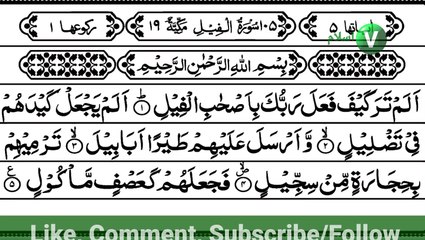 اٰيَاتُهَا ٥ ١٠٥ سُوْرَةُ الْفِيْلِ مَكِّيَّةٌ ١٩ رُكُوْعُهَا ١
اسلام V
بِسْمِ اللّٰهِ الرَّحْمٰنِ الرَّحِيْمِ
اَلَمْ تَرَ كَيْفَ فَعَلَ رَبُّكَ بِاَصْحٰبِ الْفِيْلِ ۝١ اَلَمْ يَجْعَلْ كَيْدَهُمْ
فِىْ تَضْلِيْلٍ ۝٢ وَّاَرْسَلَ عَلَيْهِمْ طَيْرًا اَبَابِيْلَ ۝٣ تَرْمِيْهِمْ
بِحِجَارَةٍ مِّنْ سِجِّيْلٍ ۝٤ فَجَعَلَهُمْ كَعَصْفٍ مَّاْكُوْلٍ ۝٥ ع
Like, Comment, Subscribe/Follow